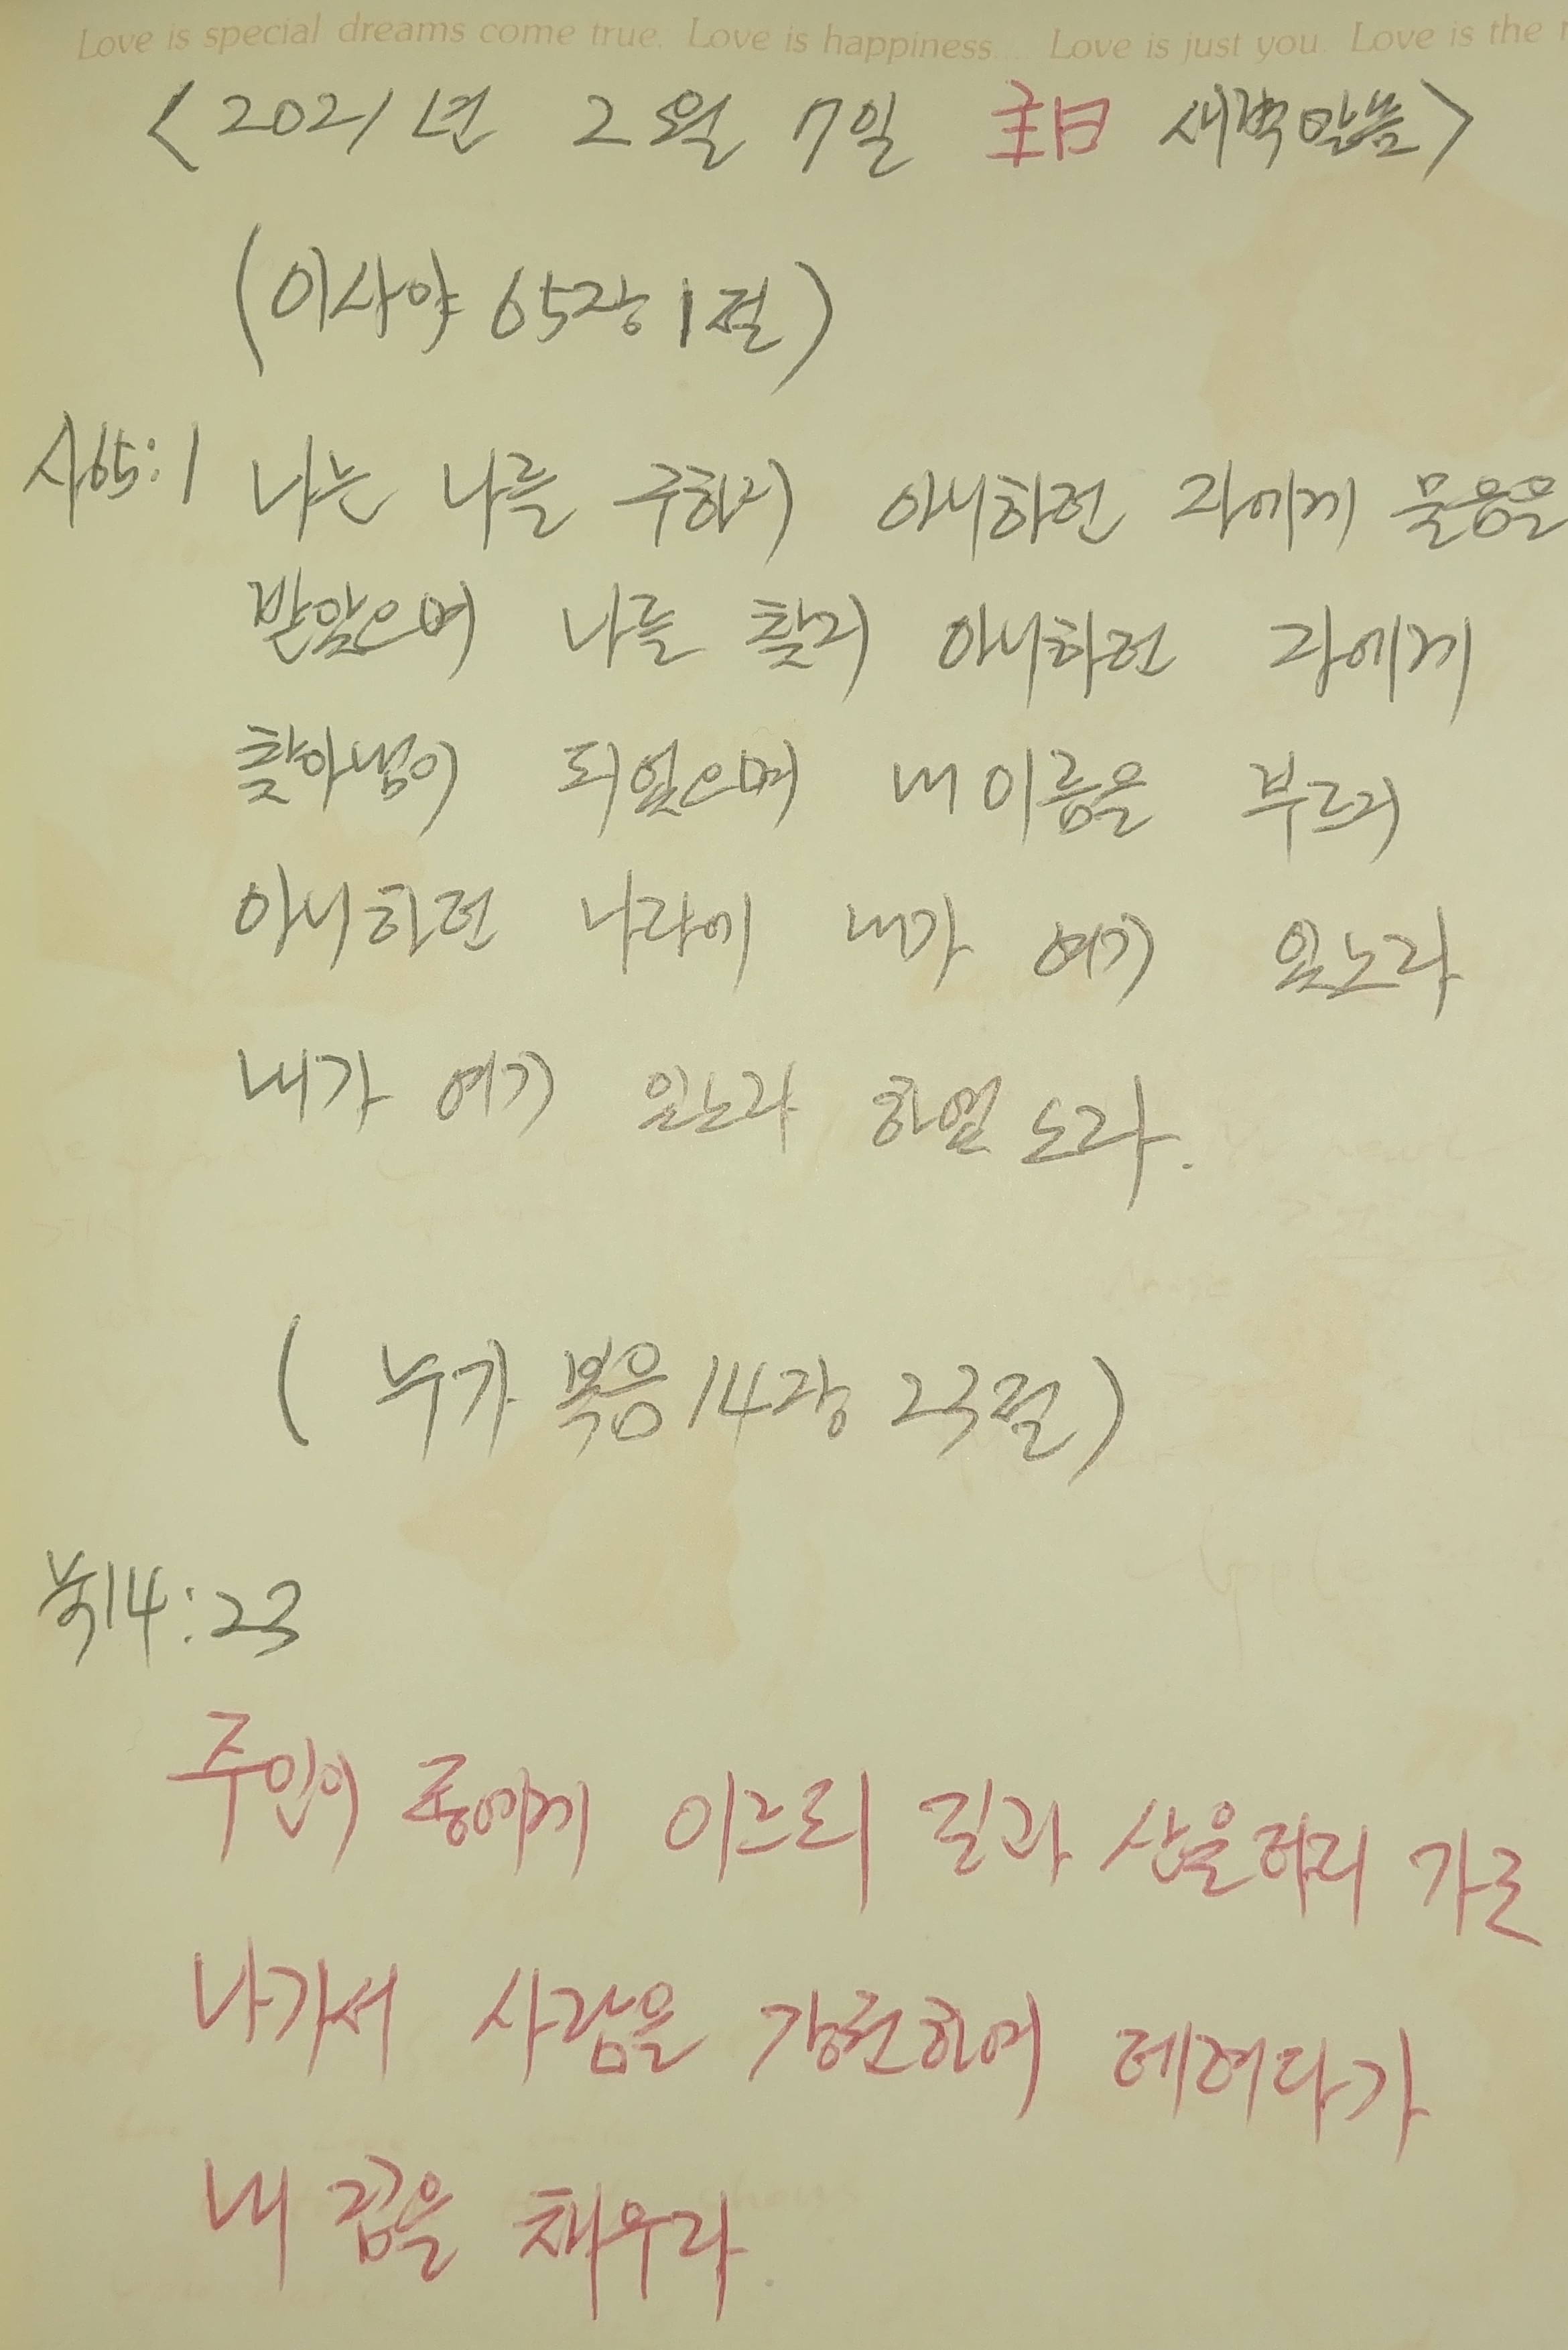 Love is special dreams come true. Love is happiness... Love is just you. Love is the
<2021년 2월 7일 主日 새벽말씀>
(이사야 65장 1절)
사65:1 나는 나를 구하지 아니하던 자에게 물음을
받았으며 나를 찾지 아니하던 자에게
찾아냄이 되었으며 내 이름을 부르지
아니하던 나라에 내가 여기 있노라
내가 여기 있노라 하였노라.
(누가복음 14장 23절)
눅14:23
주인이 종에게 이르되 길과 산울타리 가로
나가서 사람을 강권하여 데려다가
내 집을 채우라